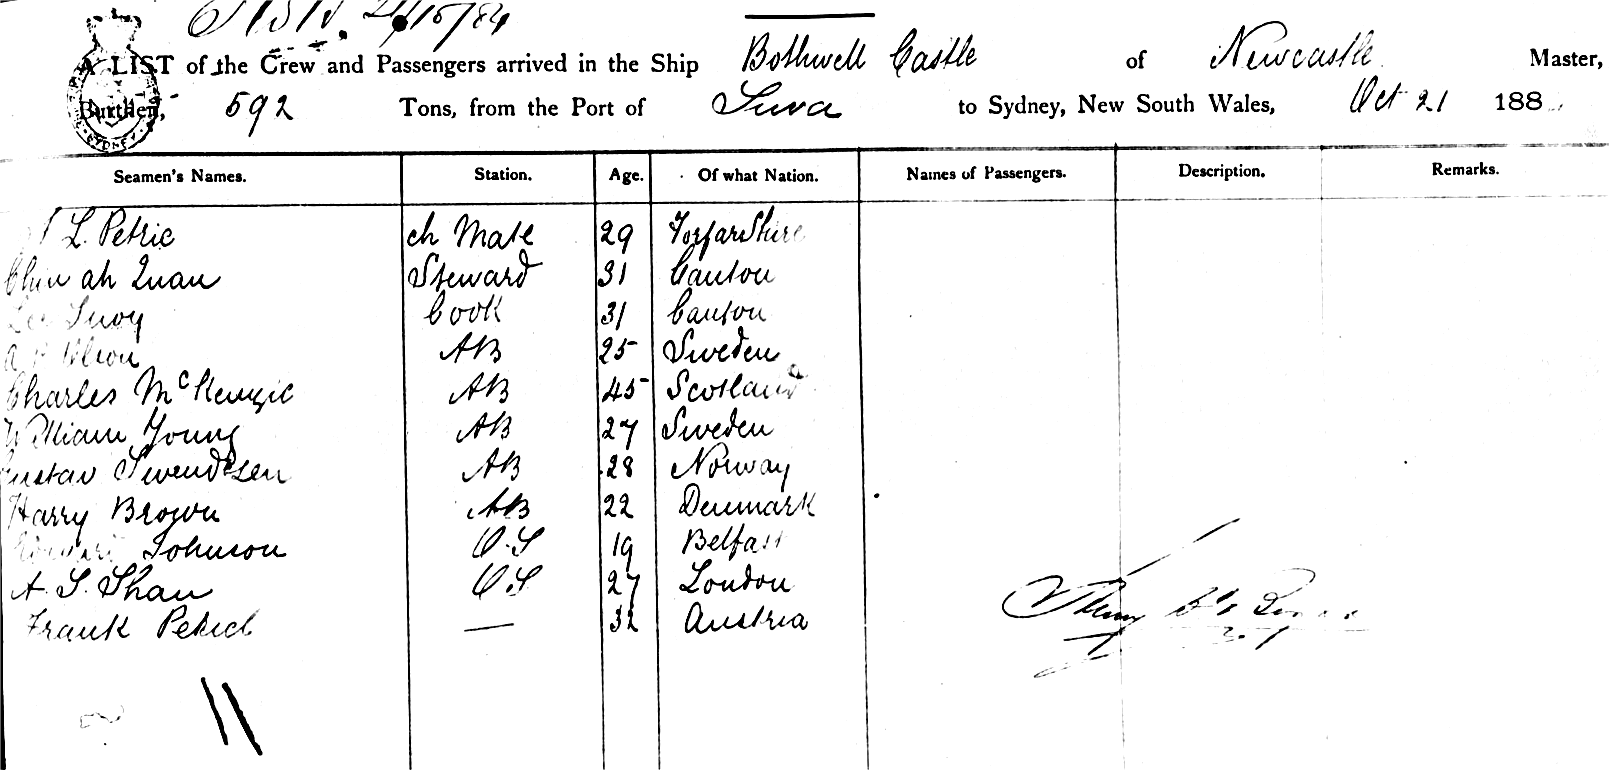 21/10/84
A LIST of the Crew and Passengers arrived in the Ship Bothwell Castle of Newcastle Master,
Burthen, 592 Tons, from the Port of Suva to Sydney, New South Wales, Oct 21 188
Seamen's Names. Station. Age. Of what Nation. Names of Passengers. Description. Remarks.
L. Petrie ch Mate 29 Forfarshire
Chin ah Quan Steward 31 Canton
Lee Cook 31 Canton
AB 25 Sweden
Charles McKenzie AB 45 Scotland
William Young AB 27 Sweden
Gustav Swendsen AB 28 Norway
Harry Brown AB 22 Denmark
Edward Johnson O.S 19 Belfast
A. S. Shaw OS 27 London
Frank Petrich — 32 Austria
11